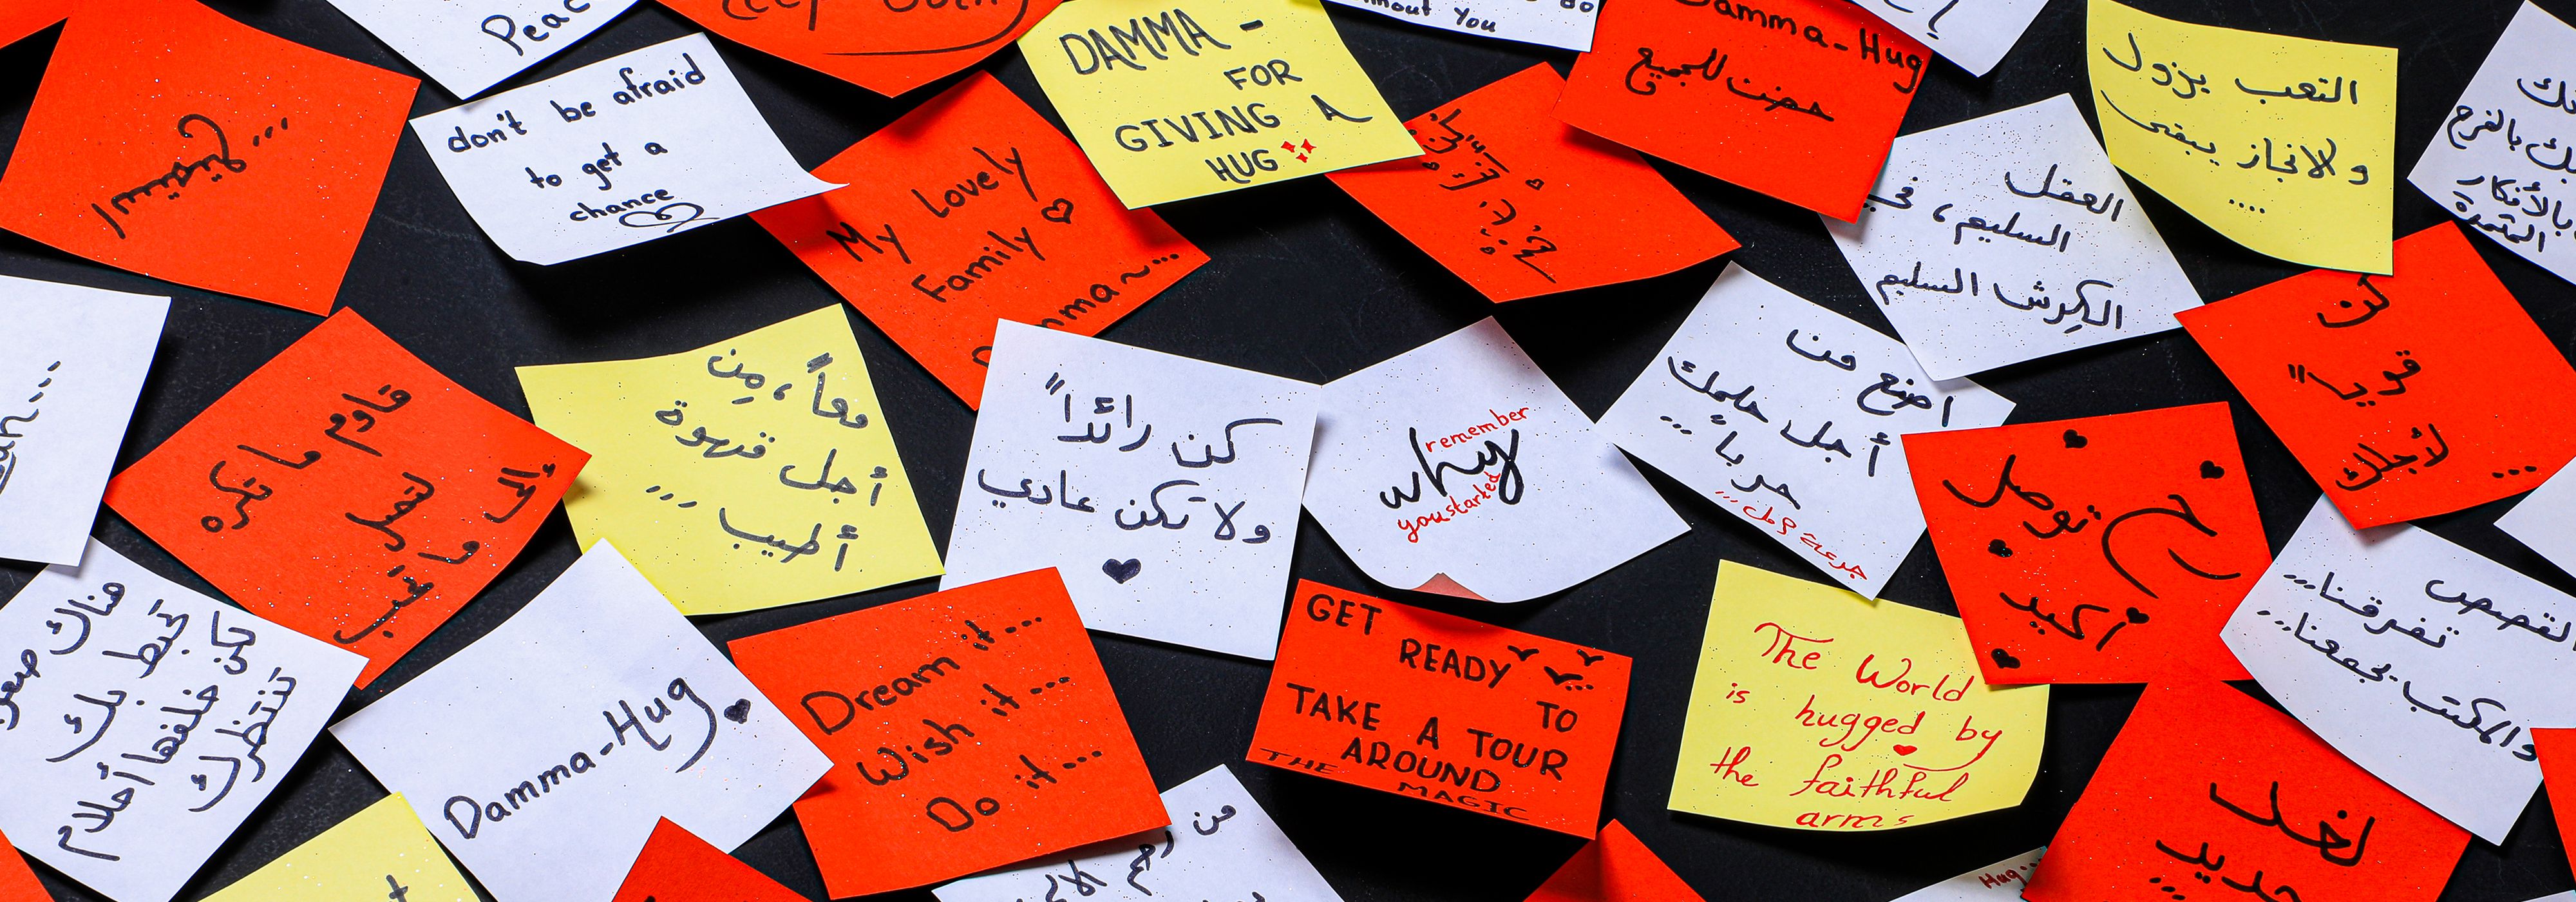 Peac
don't be afraid
to get a
chance
My Lovely
Family
DAMMA -
FOR
GIVING A
HUG
out You
do
Damma-Hug
حضن للجميع
التعب يزول
والانجاز يبقى
....
العقل
السليم، في
الكرش السليم
بالأفكار
كن
قويا"
لأجلك
...
قاوم ما تكره
لتصل
إلى ما تحب
معاً، مِن
أجل قهوة
أطيب ...
كن رائدا"
ولا تكن عادي
remember
why
you started
اصنع من
أجل حلمك
حربا" ...
جرعة أمل ...
رح توصل
أكيد
القصص
تفرقنا...
والمكتب يجمعنا...
هناك
تحبط بك
لكن خلفها أحلام
تنتظرك
Damma-Hug
Dream it...
Wish it...
Do it...
GET
READY
TO
TAKE A TOUR
AROUND
THE MAGIC
The World
is hugged by
the faithful
arms
من
رحم
لغد
جديد
...
Hug...